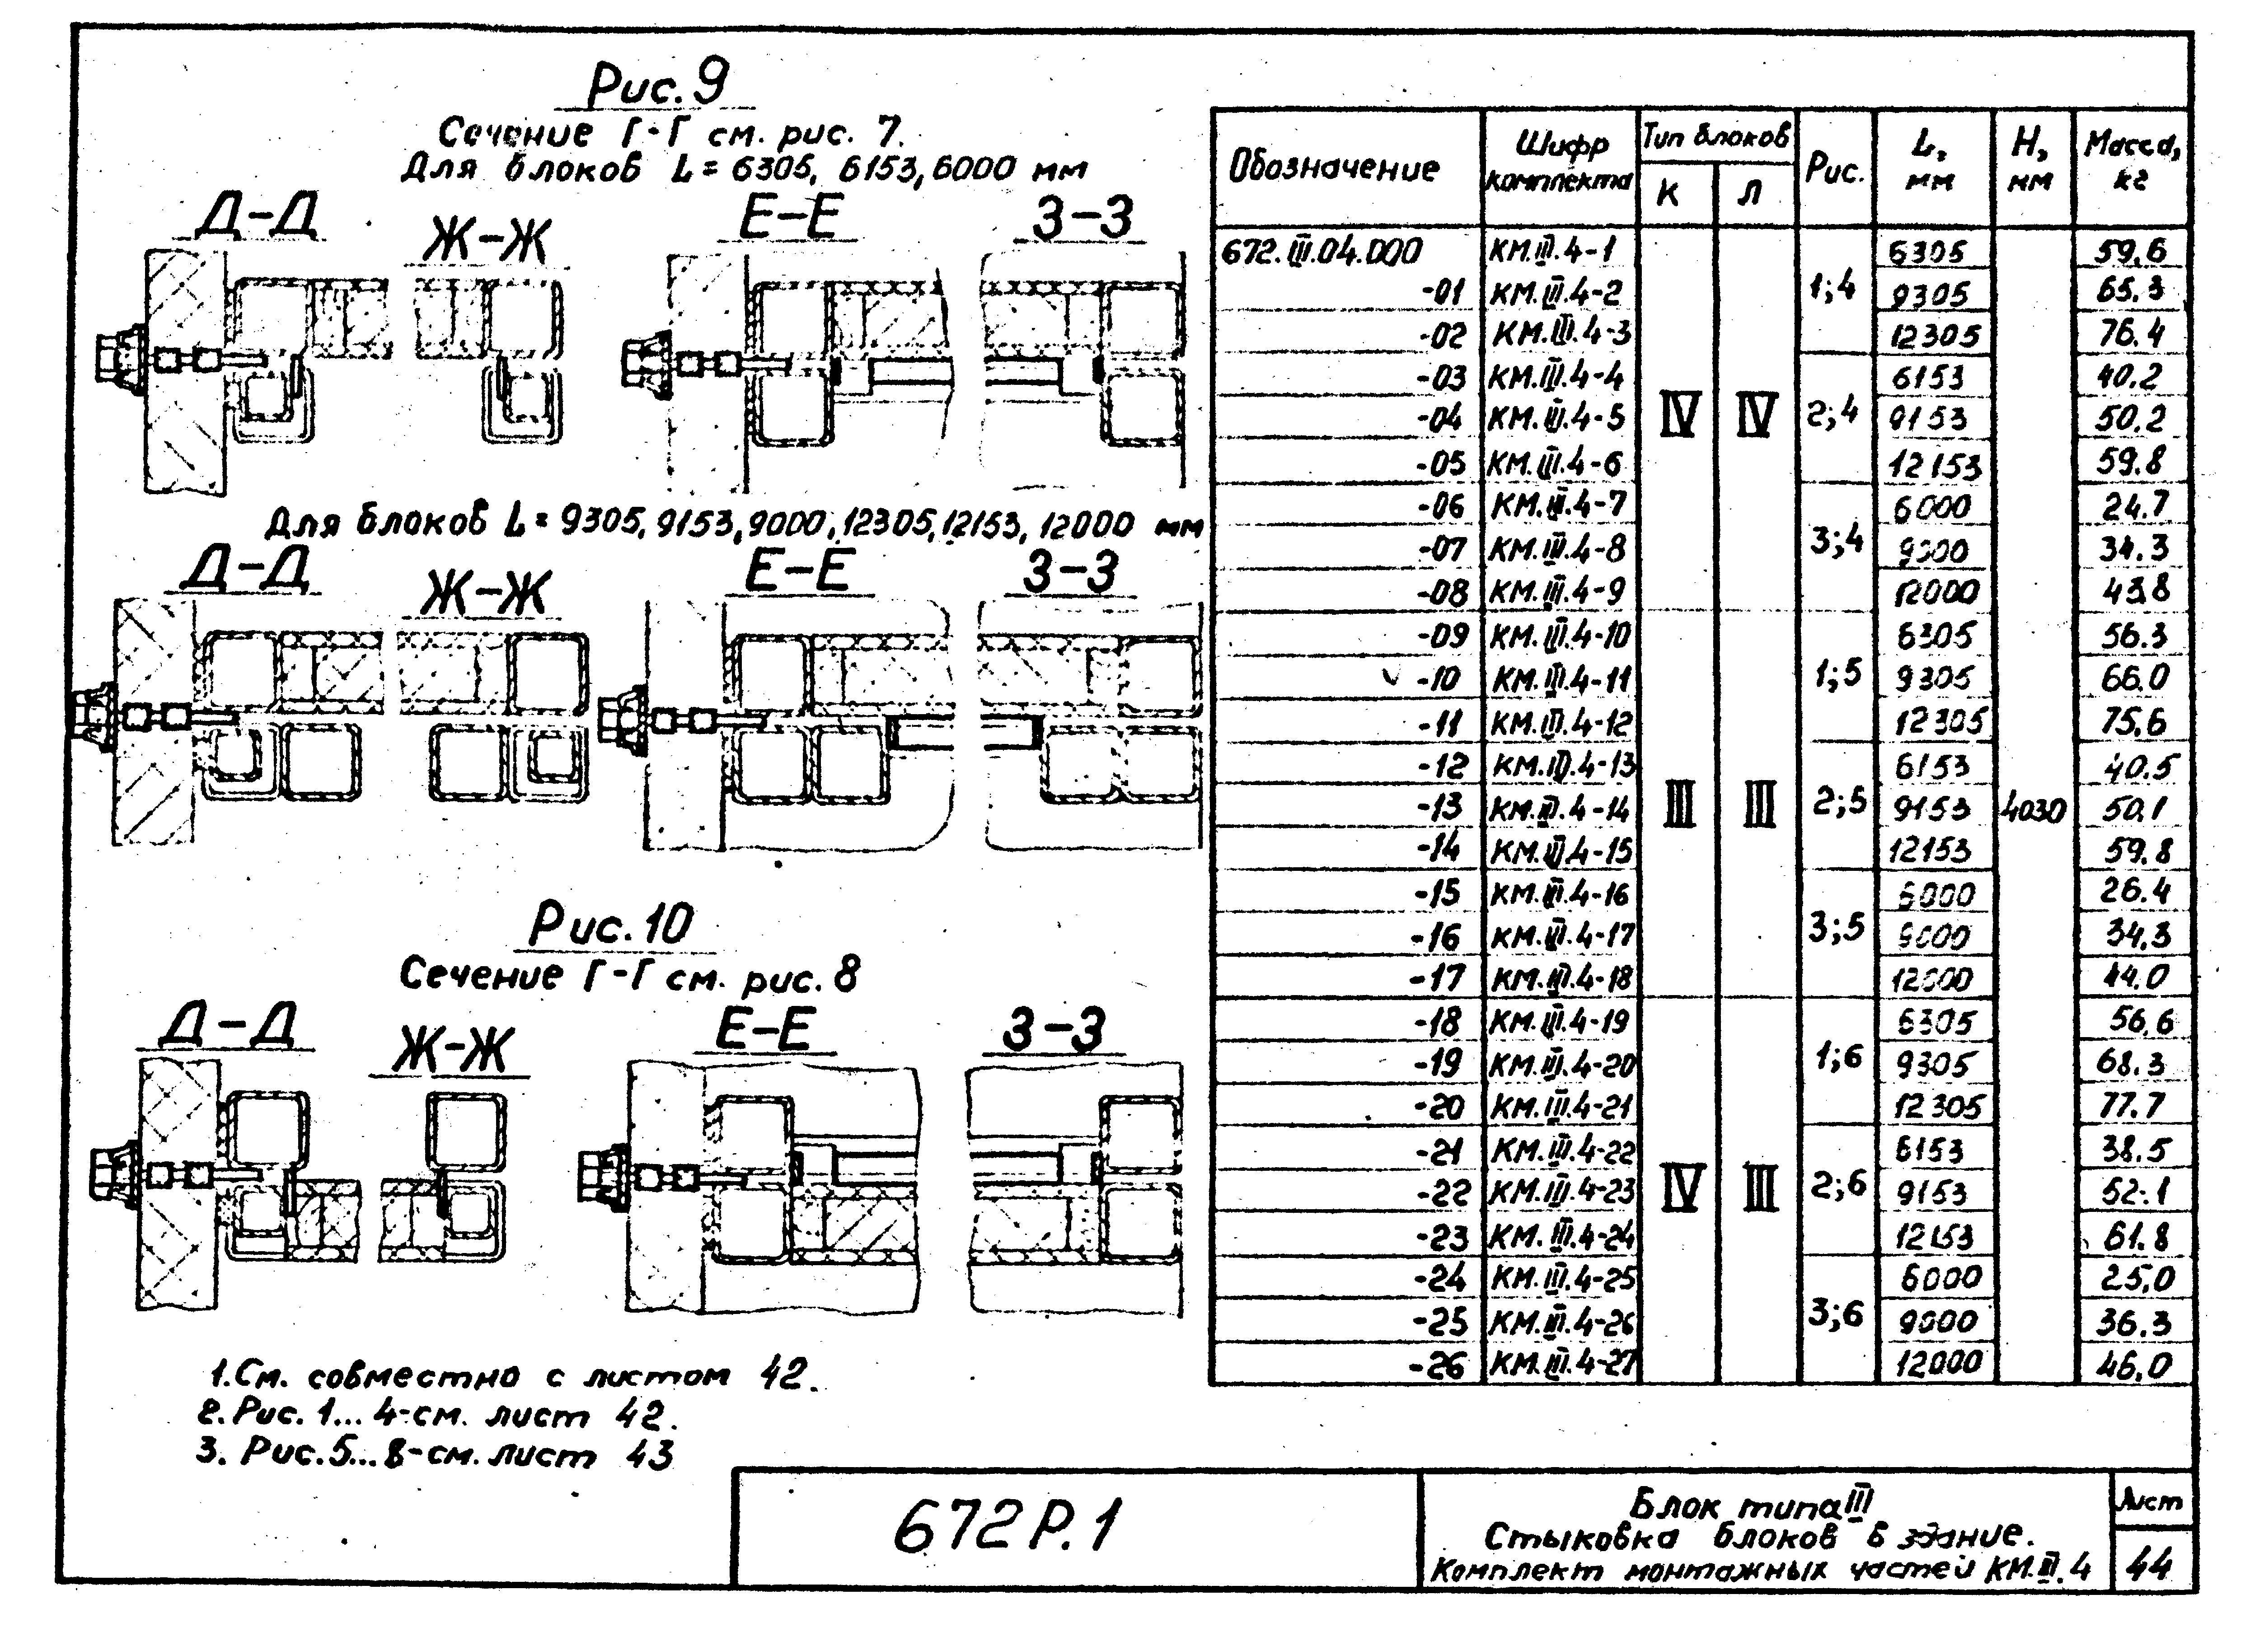 Рис. 9
Сечение Г-Г см. рис. 7.
Для блоков L = 6305, 6153, 6000 мм
Д-Д Ж-Ж Е-Е З-З
Для блоков L = 9305, 9153, 9000, 12305, 12153, 12000 мм
Д-Д Ж-Ж Е-Е З-З
Рис. 10
Сечение Г-Г см. рис. 8
Д-Д Ж-Ж Е-Е З-З
1. См. совместно с листом 42.
2. Рис. 1... 4-см. лист 42.
3. Рис. 5... 8-см. лист 43
Обозначение Шифр комплекта Тип блоков К Л Рис. L, мм Н, мм Масса, кг
672.III.04.000 КМ.III.4-1 IV IV 1;4 6305 4030 59.6
-01 КМ.III.4-2 9305 65.3
-02 КМ.III.4-3 12305 76.4
-03 КМ.III.4-4 2;4 6153 40.2
-04 КМ.III.4-5 9153 50.2
-05 КМ.III.4-6 12153 59.8
-06 КМ.III.4-7 3;4 6000 24.7
-07 КМ.III.4-8 9000 34.3
-08 КМ.III.4-9 12000 43.8
-09 КМ.III.4-10 III III 1;5 6305 56.3
-10 КМ.III.4-11 9305 66.0
-11 КМ.III.4-12 12305 75.6
-12 КМ.III.4-13 2;5 6153 40.5
-13 КМ.III.4-14 9153 50.1
-14 КМ.III.4-15 12153 59.8
-15 КМ.III.4-16 3;5 6000 26.4
-16 КМ.III.4-17 9000 34.3
-17 КМ.III.4-18 12000 44.0
-18 КМ.III.4-19 IV III 1;6 6305 56.6
-19 КМ.III.4-20 9305 68.3
-20 КМ.III.4-21 12305 77.7
-21 КМ.III.4-22 2;6 6153 38.5
-22 КМ.III.4-23 9153 52.1
-23 КМ.III.4-24 12153 61.8
-24 КМ.III.4-25 3;6 6000 25,0
-25 КМ.III.4-26 9000 36.3
-26 КМ.III.4-27 12000 46.0
672 Р.1
Блок типа III
Стыковка блоков в здание.
Комплект монтажных частей КМ.III.4
Лист
44